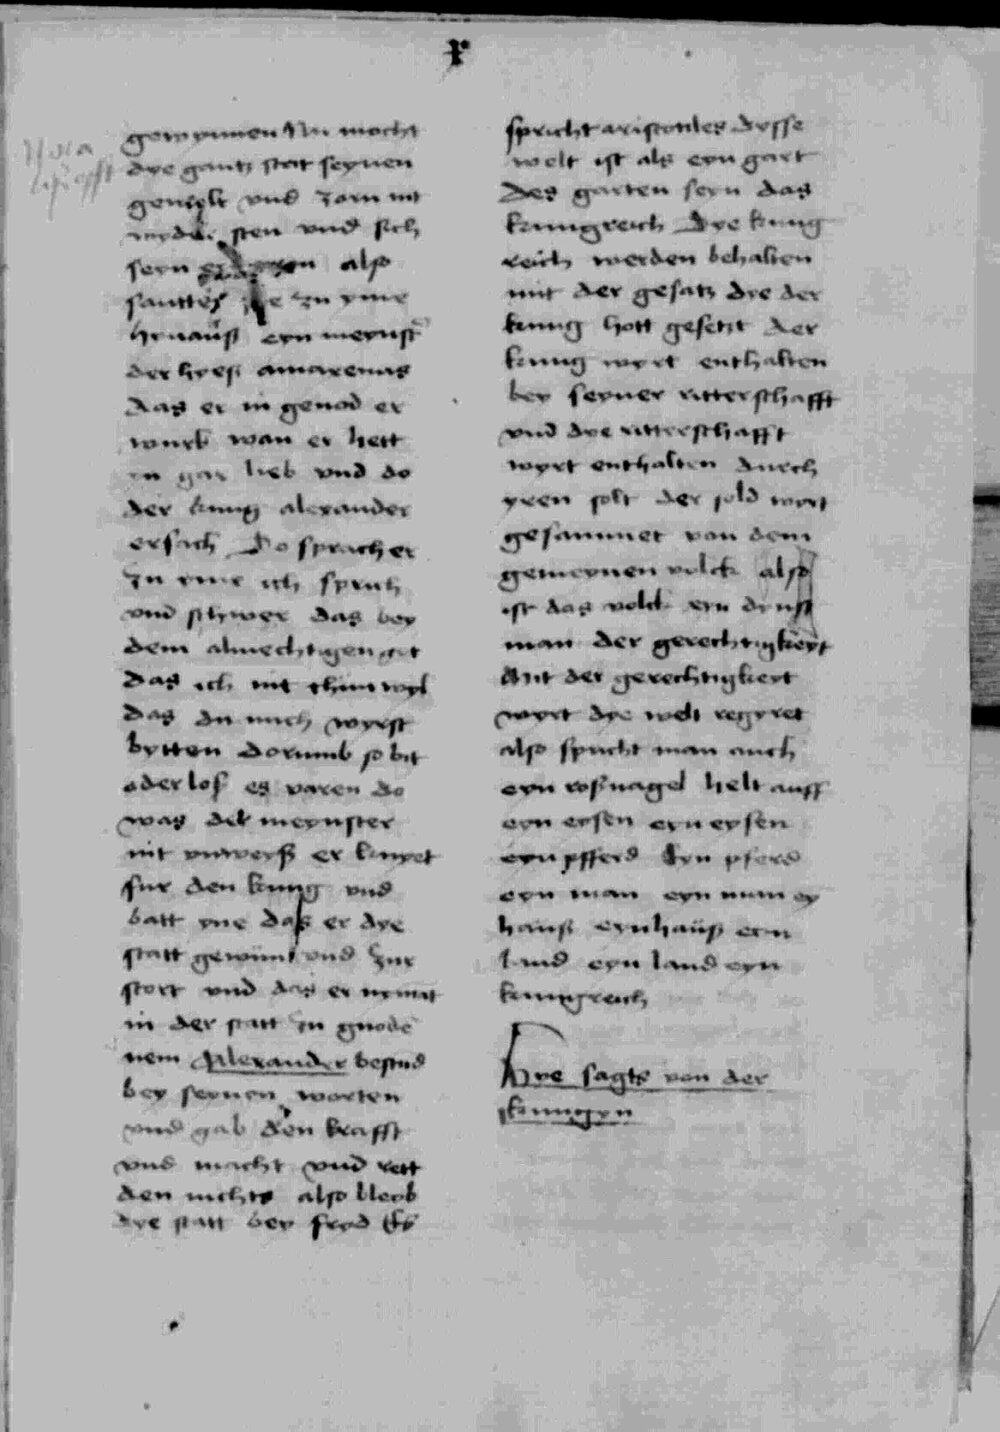 gewynnen Nu mocht
dye gantz stat seynen
gewalt vnd zorn nit
sten vnd sich
seyn also
santten sye zu yme
hynauß eyn meynster
der hyeß amaxemas
das er in genod er
wurb wan er hett
in gar lieb vnd do
der kunig alexander
ersach Do sprach er
zu yme ich sprich
vnd schwer das bey
dem almechtigen got
das ich nit thun wyl
das du mich wyrst
bytten dorumb so bit
oder loß es varen do
was der meynster
nit vnweyß er knyet
fur den kunig vnd
batt yne das er dye
statt gewun vnd zur
stort vnd das er nymāt
in der statt zu gnodē
nem Alexander bestnd
bey seynen worten
vnd gab den krafft
vnd macht vnd rett
den nichts also bleyb
dye statt bey fryd Es
spricht aristotiles dysse
welt ist als eyn gart
Des garten seyn das
kunigreich Dye kunig
reich werden behalten
mit der gesatz dye der
kunig hott gesetzt der
kunig wyrt enthalten
bey seyner ritterschafft
vnd dye ritterschafft
wyrt enthalten durch
yren solt der sold wyrt
gesammet von dem
gemeynen volck also
ist das volck eyn dynst
man der gerechtigkeyt
Mit der gerechtigkeyt
wyrt dye welt regyret
also spricht man auch
eyn roßnagel helt auff
eyn eysen eyn eysen
eyn pfferd Eyn pferd
eyn man eyn man ey
hauß eyn hauß eyn
land eyn land eyn
kunigreich
Hye sagts von der
kunigyn